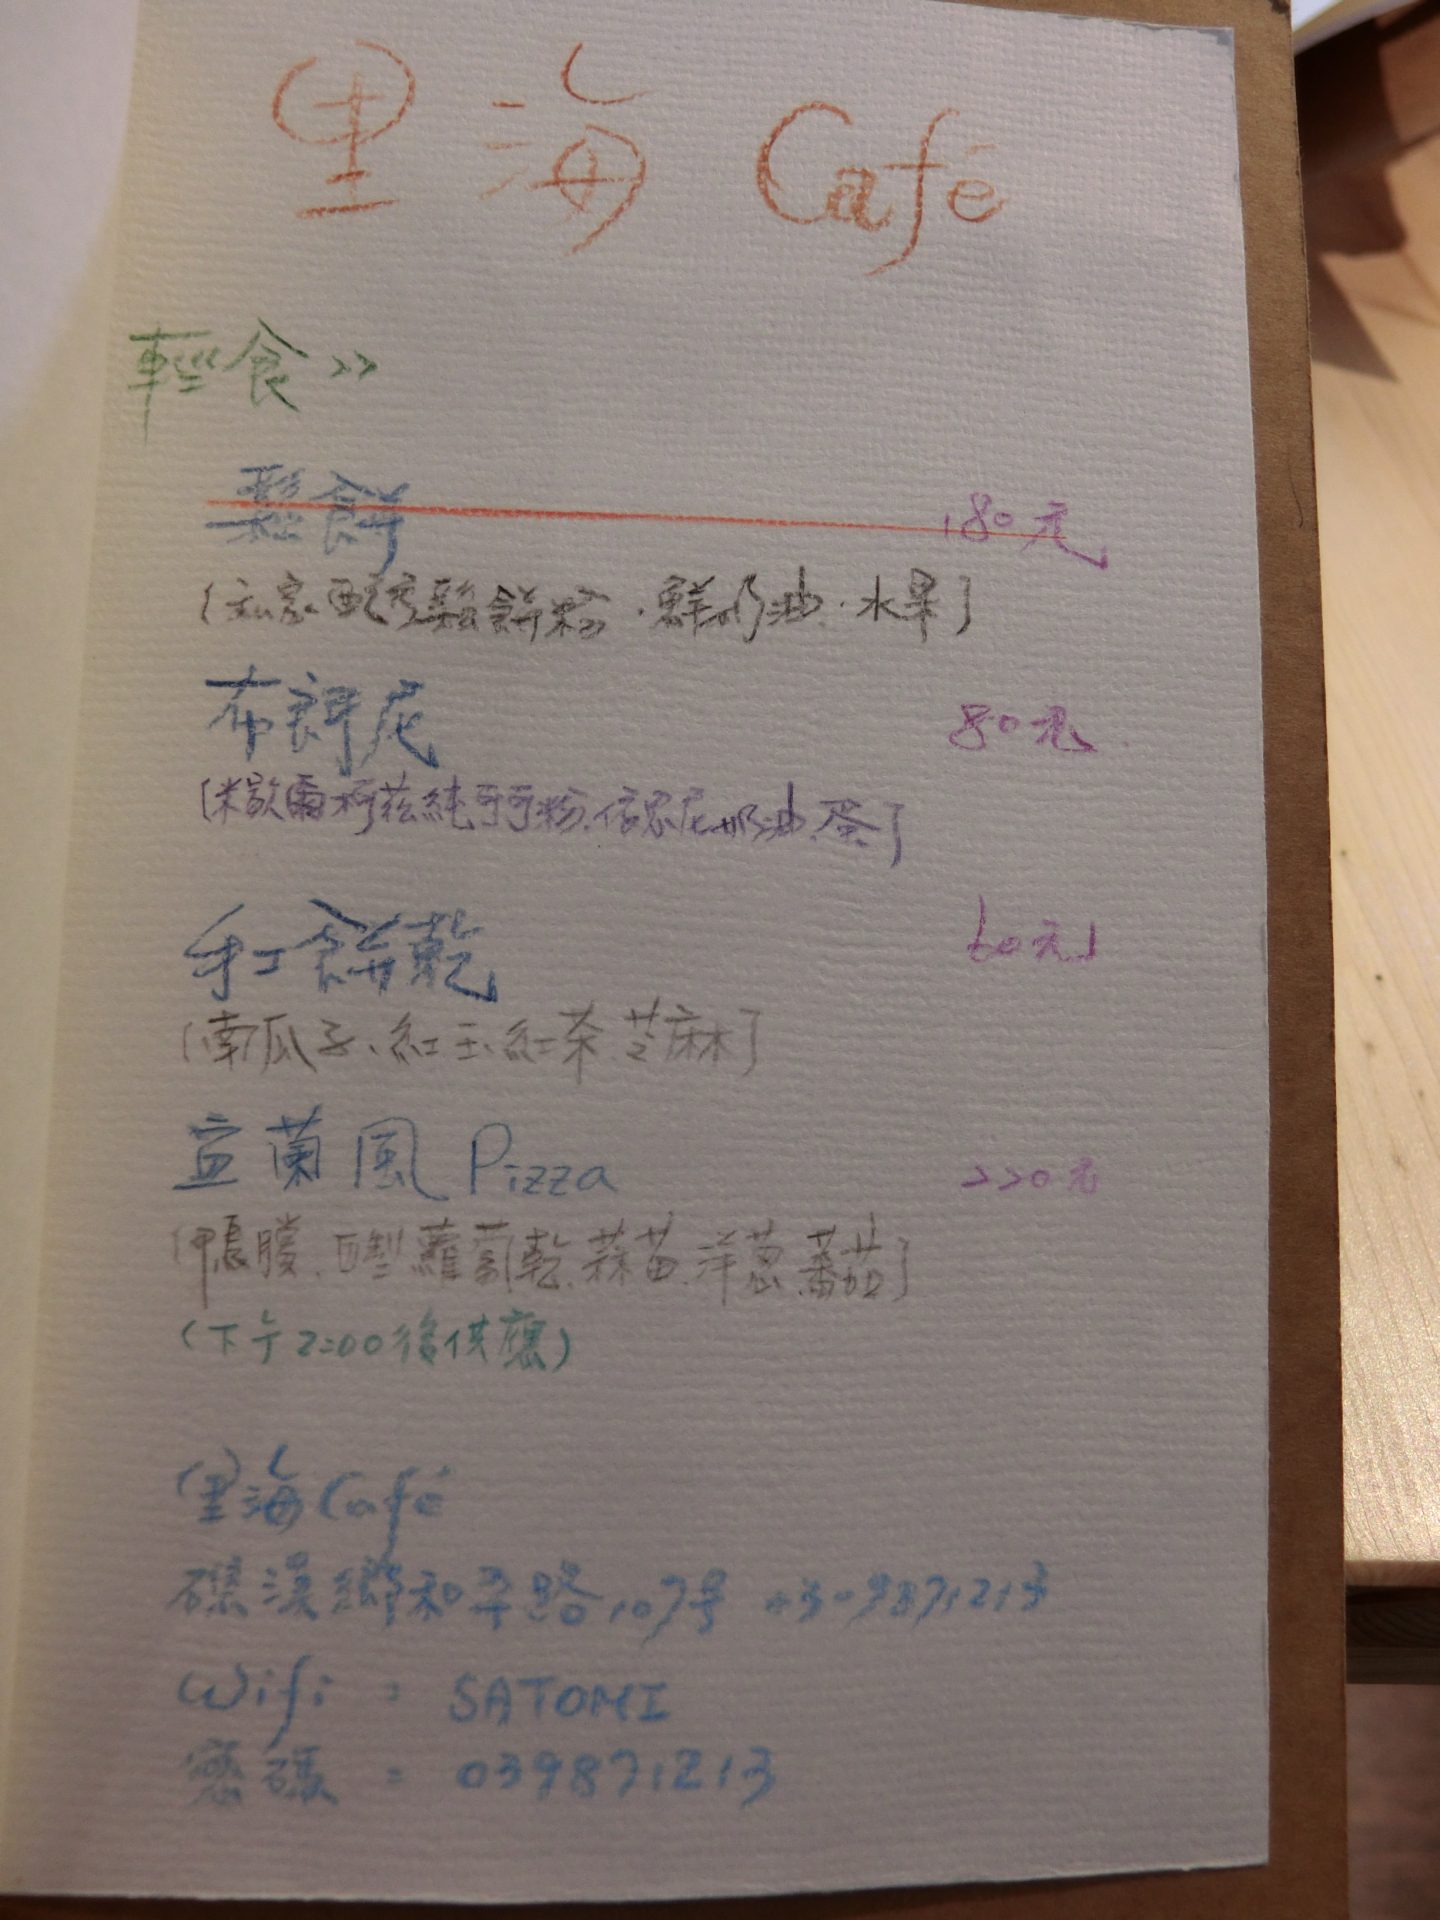 里海 Café
輕食 >>
鬆餅 180元
(私家配方鬆餅粉.鮮奶油.水果)
布朗尼 80元
(米歇爾柯茲純可可粉.依思尼奶油.蛋)
手工餅乾 60元
(南瓜子、紅玉紅茶.芝麻)
宜蘭風 Pizza 220元
(鴨賞.自製蘿蔔乾.蒜苗.洋蔥.蕃茄)
(下午2:00後供應)
里海Café
礁溪鄉和平路107号 03-9871213
Wifi : SATOMI
密碼 : 039871213